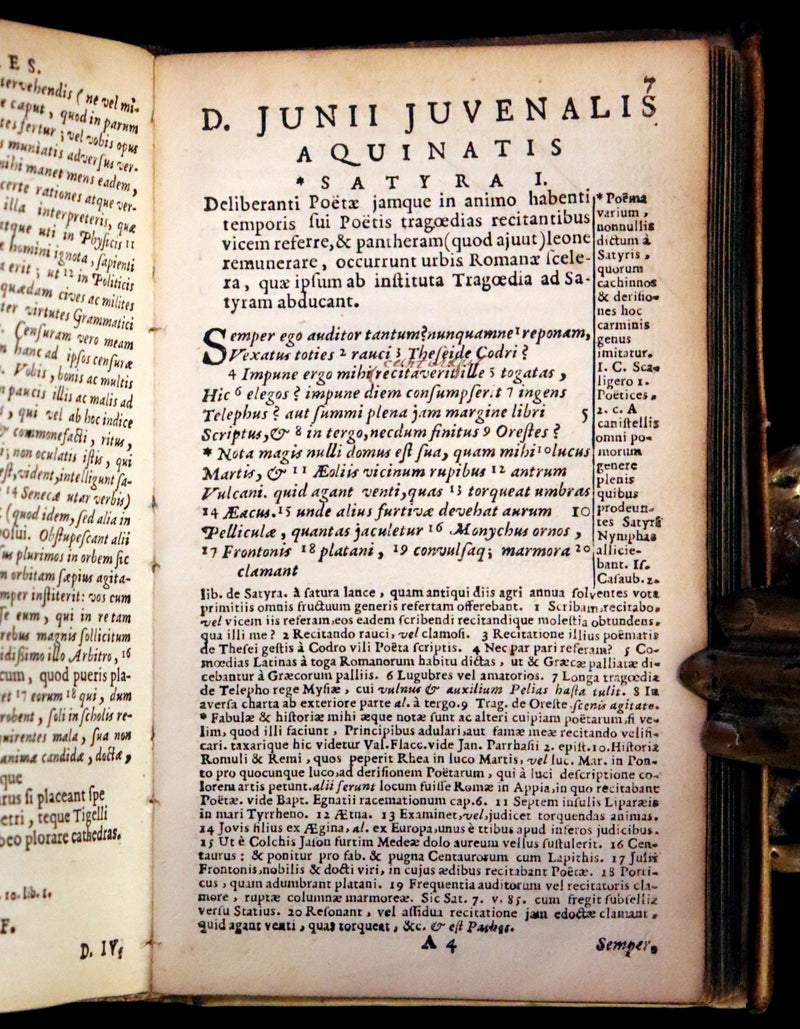 E S.
tervehendis (ne vel mi-
e caput, quod in parum
tes fertur; vel vobis opus
s muniatis adversus ver-
nihi manet mens eadem,
certe rationes atque ver-
illa interpreteris, quæ
atque uti in Physicis 11
e homini ignota, sapienti
erit; ut 12 in Politicis
quædam cives ac milites
ter virtutes Grammatici
Censuram vero meam
hanc ad ipsos censuræ
Vobis, bonis ac multis
paucis illis ac malis ad
, qui vel ab hoc indice
commonefacti, ritus,
; non oculatis istis, qui
est, vident, intelligunt sa-
14 Senecæ utar verbis)
(quod idem, sed alia in
volui. Obstupescant alii
us plurimos in orbem sic
n orbitam sæpius agita-
mper institerit: vos cum
se eum, qui in re tam
rebus magnis sollicitum
idissimo illo Arbitro, 16
cum, quod pueris pla-
et 17 eorum 18 qui, dum
robent, soli in scholis re-
quirentes mala, sua non
anima candida, docta,
que
rus si placeant spe
etri, teque Tigelli
beo plorare cathedras.
10. lib. 1.
F.
D. IV;
7
D. JUNII JUVENALIS
AQUINATIS
* SATYRA I.
Deliberanti Poëtæ jamque in animo habenti
temporis sui Poëtis tragœdias recitantibus
vicem referre, & pantheram (quod ajuut) leone
remunerare, occurrunt urbis Romanæ scele-
ra, quæ ipsum ab instituta Tragœdia ad Sa-
tyram abducant.
* Poëma
varium,
nonnullis
dictum à
Satyris,
quorum
cachinnos
& derisio-
nes hoc
carminis
genus
imitatur.
I. C. Sca-
ligero 1.
Poëtices,
2. c. A
canistellis
omni po-
morum
genere
plenis
quibus
prodeun-
tes Satyri
Nymphas
allicie-
bant. Is.
Casaub. 2.
Semper ego auditor tantum? nunquamne 1 reponam,
Vexatus toties 2 rauci 3 Theseide Codri?
4 Impune ergo mihi recitaverit ille 5 togatas,
Hic 6 elegos? impune diem consumpserit 7 ingens
Telephus? aut summi plena jam margine libri 5
Scriptus, & 8 in tergo, necdum finitus 9 Orestes?
* Nota magis nulli domus est sua, quam mihi 10 lucus
Martis, & 11 Æoliis vicinum rupibus 12 antrum
Vulcani. quid agant venti, quas 13 torqueat umbras
14 Æacus. 15 unde alius furtivæ devehat aurum 10
Pelliculæ, quantas jaculetur 16 Monychus ornos,
17 Frontonis 18 platani, 19 convulsaq; marmora 20
clamant
lib. de Satyra. à satura lance, quam antiqui diis agri annua solventes vota
primitiis omnis fructuum generis refertam offerebant. 1 Scribam, recitabo,
vel vicem iis referam, eos eadem scribendi recitandique molestia obtundens,
qua illi me? 2 Recitando rauci, vel clamosi. 3 Recitatione illius poëmatis
de Thesei gestis à Codro vili Poëta scriptis. 4 Nec par pari referam? 5 Co-
mœdias Latinas à toga Romanorum habitu dictas, ut & Græcæ palliatæ di-
cebantur à Græcorum palliis. 6 Lugubres vel amatorios. 7 Longa tragœdia
de Telepho rege Mysiæ, cui vulnus & auxilium Pelias hasta tulit. 8 In
aversa charta ab exteriore parte al. à tergo. 9 Trag. de Oreste scenis agitate.
* Fabulæ & historiæ mihi æque notæ sunt ac alteri cuipiam poëtarum, si ve-
lim, quod illi faciunt, Principibus adulari, aut famæ meæ recitando velifi-
cari. taxarique hic videtur Val. Flacc. vide Jan. Parrhasii 2. epist. 10. Historia
Romuli & Remi, quos peperit Rhea in luco Martis, vel luc. Mar. in Pon-
to pro quocunque luco, ad derisionem Poëtarum, qui à luci descriptione co-
lorem artis petunt. alii ferunt locum fuisse Romæ in Appia, in quo recitabant
Poëtæ. vide Bapt. Egnatii racemationum cap. 6. 11 Septem insulis Liparæis
in mari Tyrrheno. 12 Ætna. 13 Examinet, vel, judicet torquendas animas.
14 Jovis filius ex Ægina, al. ex Europa, unus è tribus apud inferos judicibus.
15 Ut è Colchis Jason furtim Medeæ dolo aureum vellus sustulerit. 16 Cen-
taurus: & ponitur pro fab. & pugna Centaurorum cum Lapithis. 17 Julii
Frontonis, nobilis & docti viri, in cujus ædibus recitabant Poëtæ. 18 Porti-
cus, quam adumbrant platani. 19 Frequentia auditorum vel recitatoris cla-
more, ruptæ columnæ marmoreæ. Sic Sat. 7. v. 85. cum fregit subsellia
versu Statius. 20 Resonant, vel assidua recitatione jam edoctæ clamant,
quid agant venti, quas torqueat, &c. & est Pathos.
A 4
Semper,